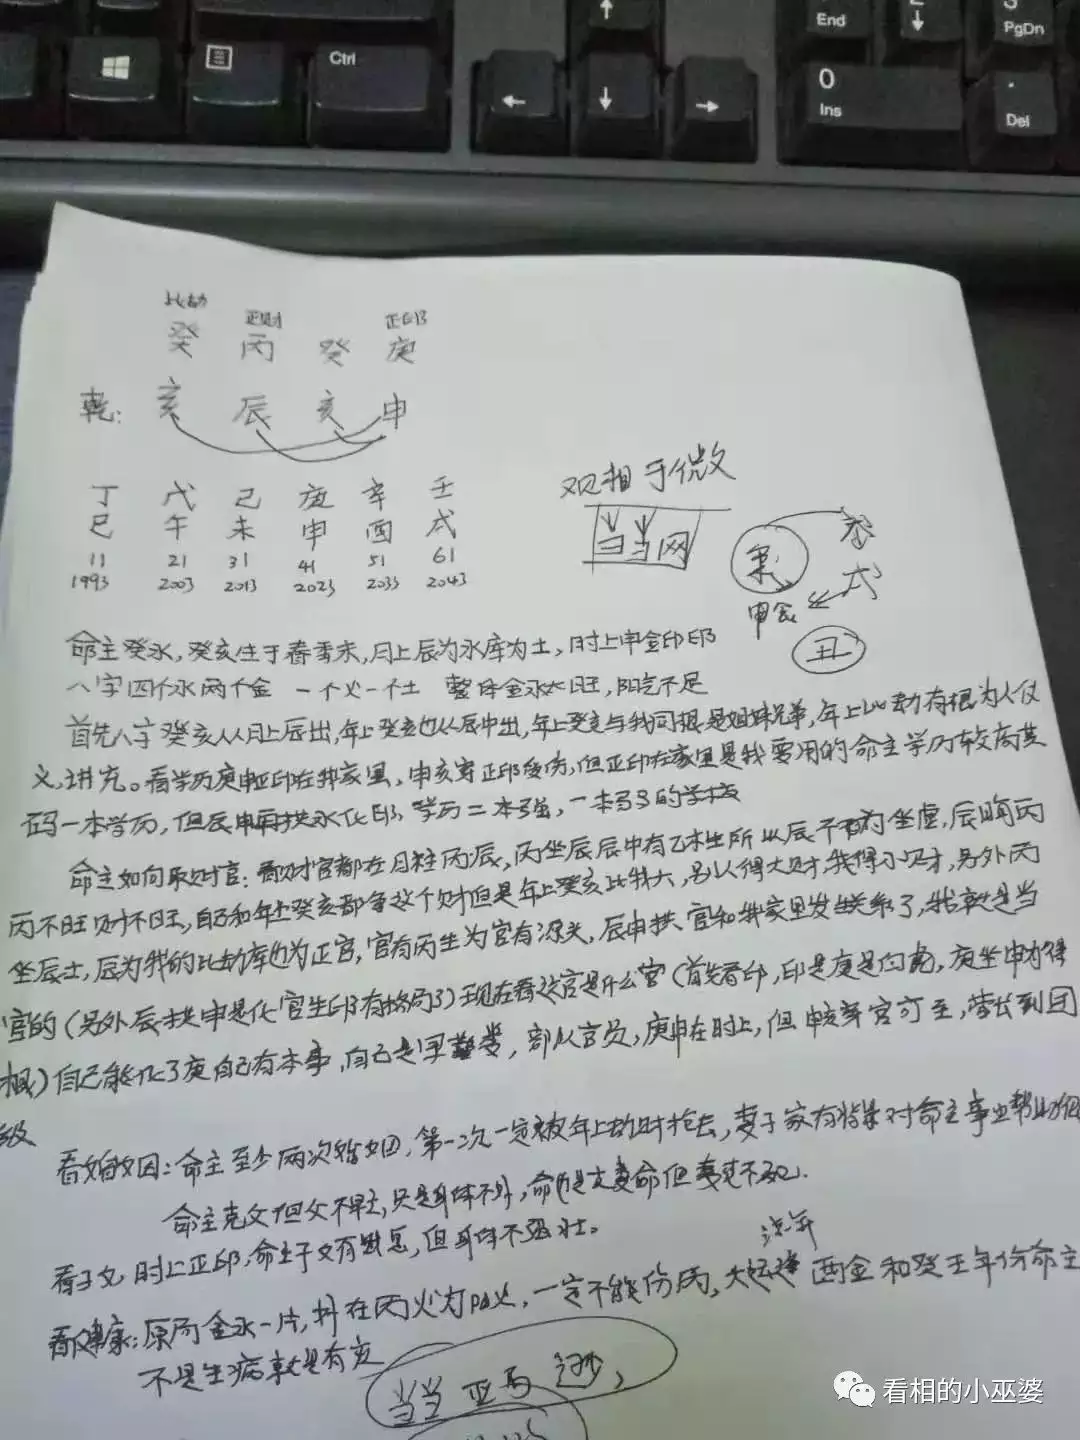 End
PgDn
Ctrl
0
Ins
.
Del
比劫
正财
正印
癸 丙 癸 庚
乾: 亥 辰 亥 申
丁 戊 己 庚 辛 壬
巳 午 未 申 酉 戌
11 21 31 41 51 61
1993 2003 2013 2023 2033 2043
观相于微
当当网
丑
命主癸水,癸亥生于春季末,月上辰为水库为土,时上申金印
八字四个水两个金 一个火一个土 整体金水太旺,阳气不足
首先八字癸亥从月上辰出,年上癸亥也从辰中出,年上癸亥与我同根是姐妹兄弟,年上比劫有根为人仗
义,讲究。看学历庚申正印在我家里,申亥穿正印受伤,但正印在家里是我要用的命主学历较高
码一本学历,但辰申拱水化印,学历二本强,一本弱的学校
命主如何取财官:看财官都在月柱丙辰,丙坐辰辰中有乙木生所以辰不为坐虚,辰晦丙
丙不旺财不旺,自己和年上癸亥都争这个财但是年上癸亥比我大,别人得大财,我得小财,另外丙
坐辰土,辰为我的比劫库也为正官,官有丙生为官有源头,辰申拱官和我家里发生关系了,我就是当
官的(另外辰拱申是化官生印有格局了)现在看这官是什么官(首先看印,印是庚是白虎,庚坐申为得
根)自己能化了庚自己有本事,自己是军警类,部队官员,庚申在时上,但申亥穿官可至,营长到团
级
看婚姻:命主至少两次婚姻,第一次一定被年上劫财抢去,妻子家有背景对命主事业帮助很
命主克父但父不早亡,只是身体不好,
看子女,时上正印,命主子女有出息,但身体不强壮。
流年
看健康:原局金水一片,抖在丙火为 一定不能伤丙,大运逢酉金和癸壬年份命主
不是生病就是有灾
当当 亚马逊,
看相的小巫婆